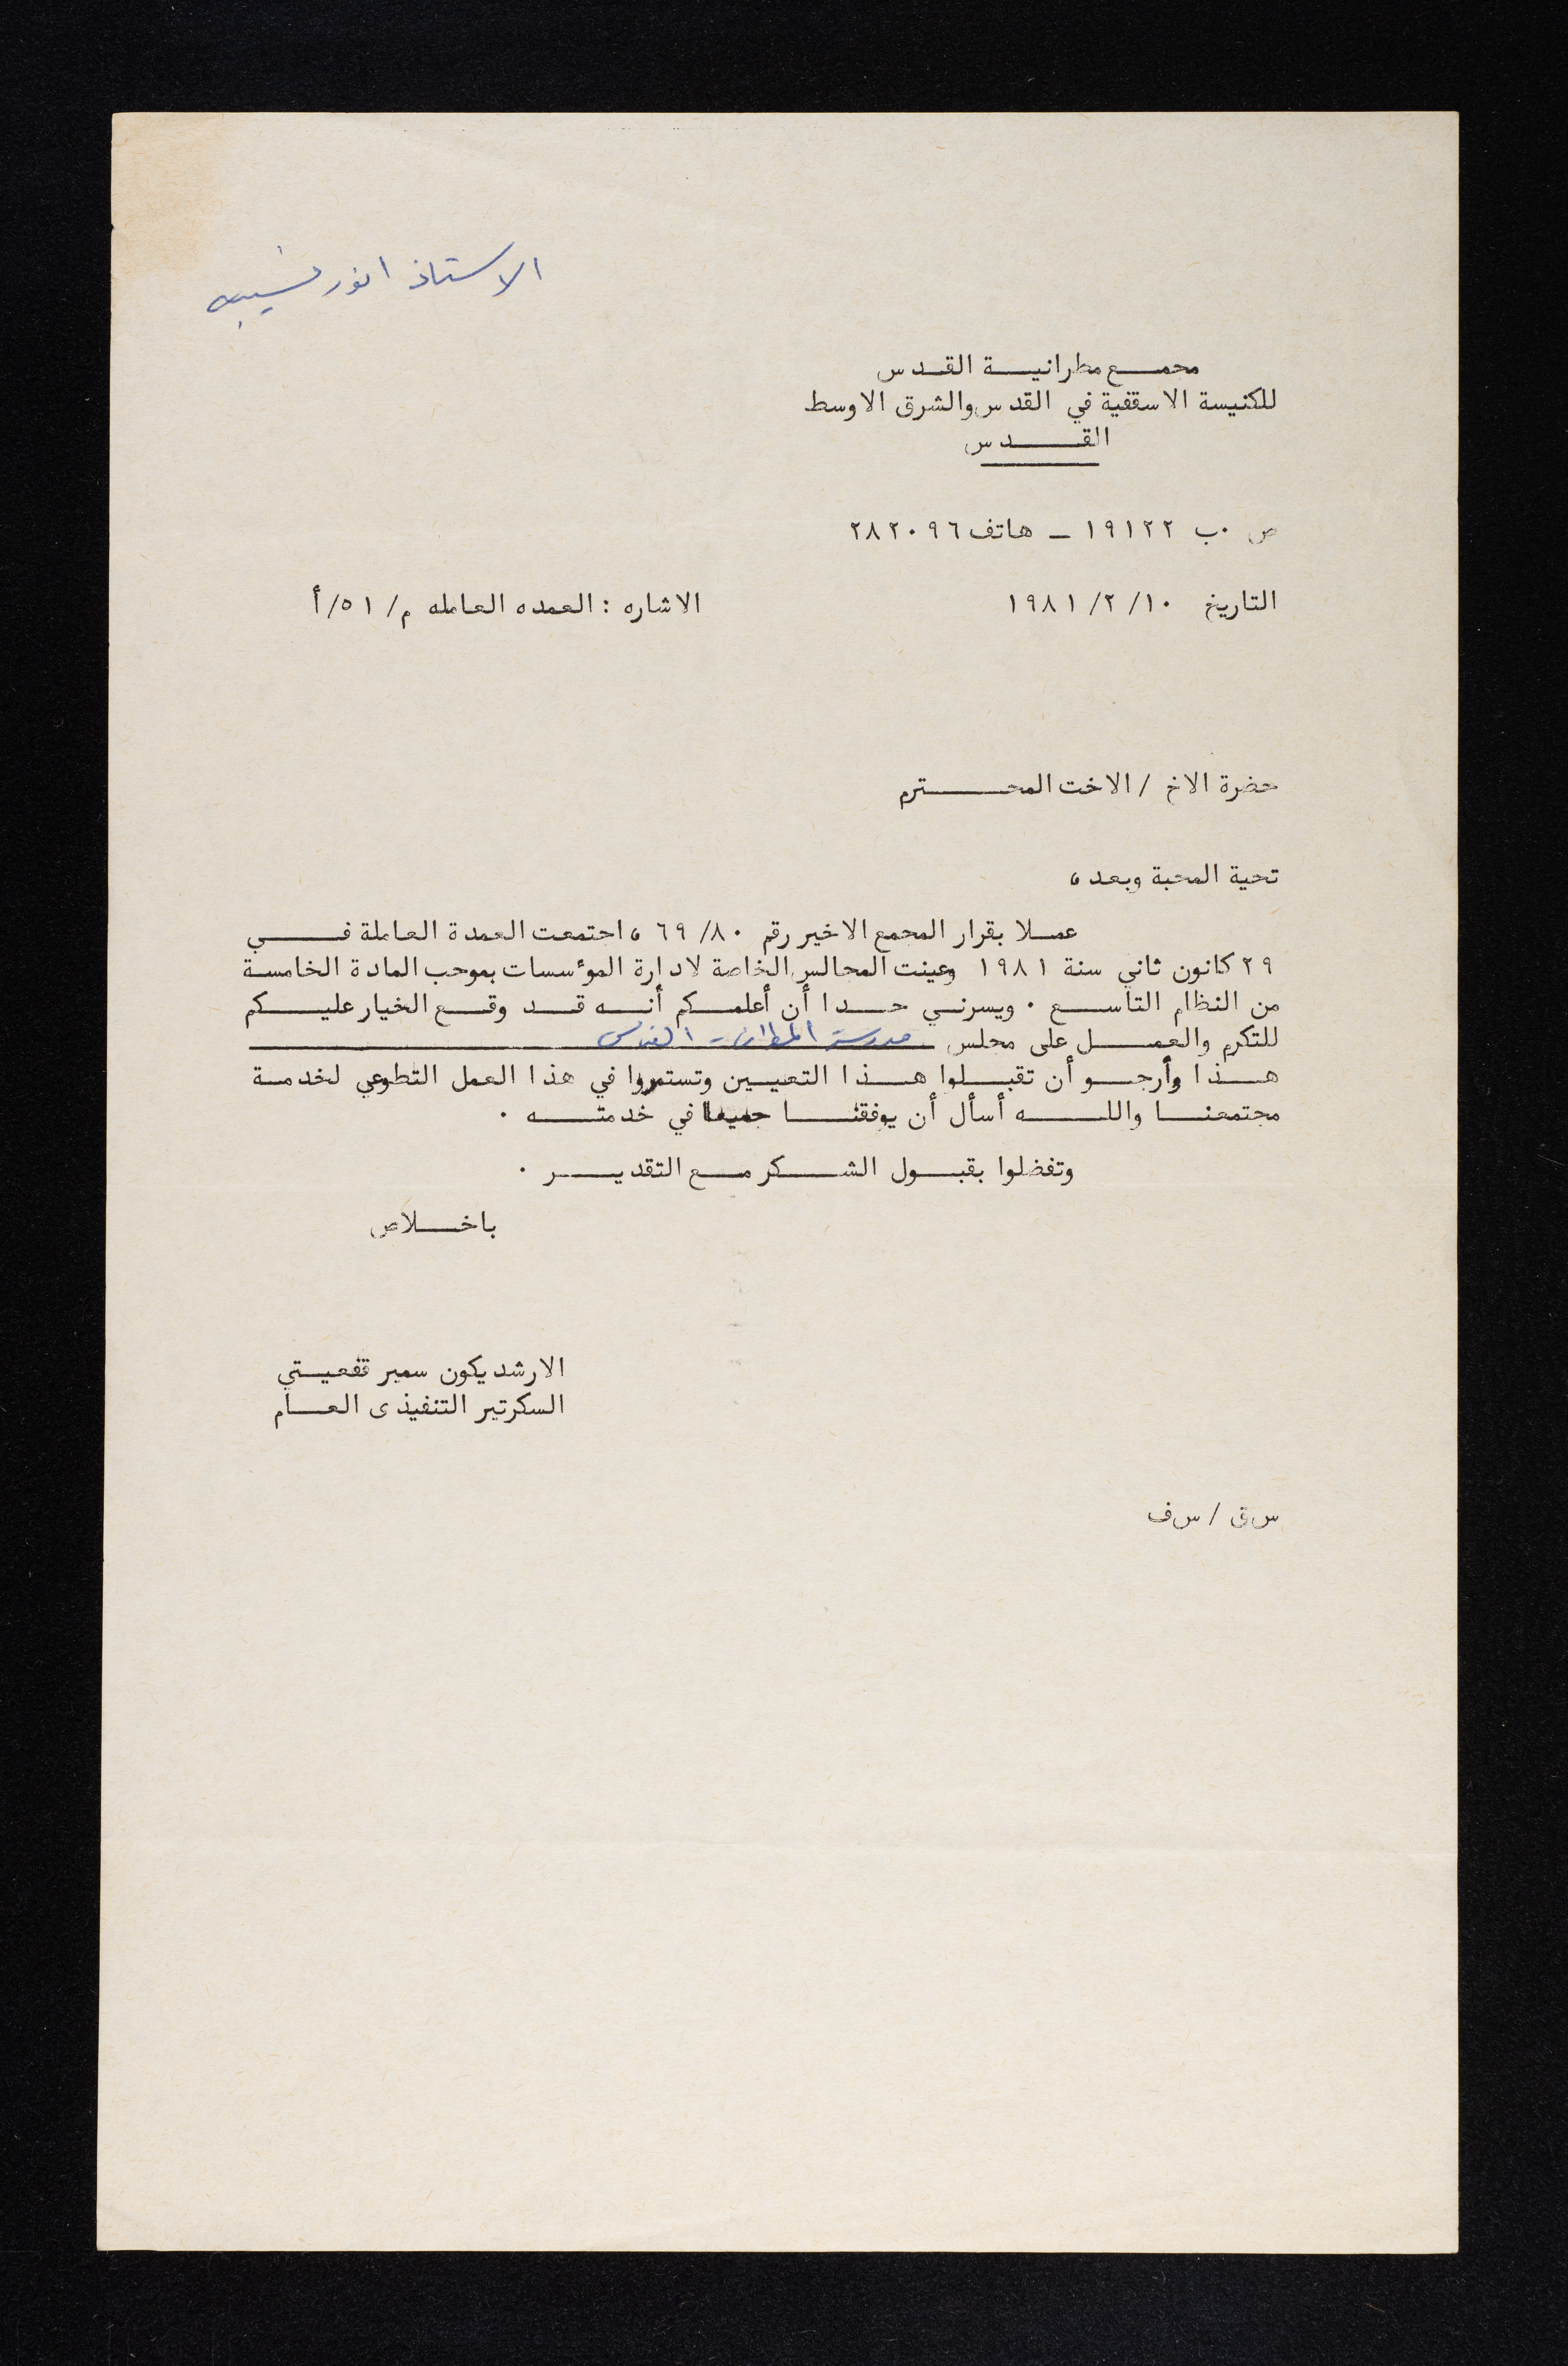 الاستاذ انور نسيبه
مجمع مطرانية القدس
للكنيسة الاسقفية في القدس والشرق الاوسط
القدس
ص.ب ١٩١٢٢ - هاتف ٢٨٢٠٩٦
التاريخ ١٠/٢/١٩٨١ الاشاره : العمده العامله م/٥١/أ
حضرة الاخ / الاخت المحترم
تحية المحبة وبعد ،
عملا بقرار المجمع الاخير رقم ٦٩/٨٠ ، اجتمعت العمدة العاملة في
٢٩ كانون ثاني سنة ١٩٨١ وعينت المجالس الخاصة لادارة المؤسسات بموجب المادة الخامسة
من النظام التاسع . ويسرني جدا أن أعلمكم أنه قد وقع الخيار عليكم
للتكرم والعمل على مجلس مدرسة المطران - القدس
هذا وأرجو أن تقبلوا هذا التعيين وتستمروا في هذا العمل التطوعي لخدمة
مجتمعنا والله أسأل أن يوفقنا جميعا في خدمته .
وتفضلوا بقبول الشكر مع التقدير .
باخلاص
الارشديكون سمير قفعيتي
السكرتير التنفيذى العام
س ق / س ف